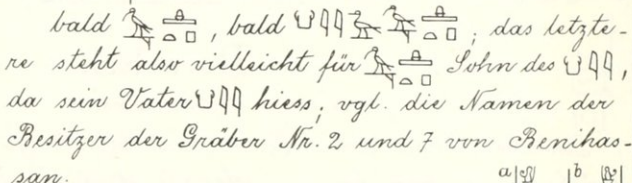 bald 𓅝𓊵𓏏𓊪, bald 𓂓𓇋𓇋𓅭𓅝𓊵𓏏𓊪; das letzte-
re steht also vielleicht für 𓅝𓊵𓏏𓊪 Sohn des 𓂓𓇋𓇋,
da sein Vater 𓂓𓇋𓇋 hiess; vgl. die Namen der
Besitzer der Gräber Nr. 2 und 7 von Benihas-
san. a| |b